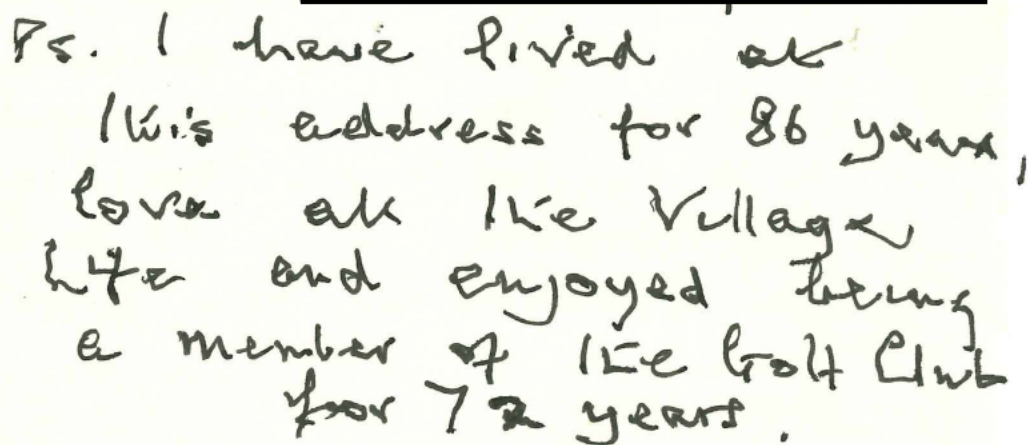 Ps. I have lived at
this address for 86 years,
love all the Village
Life and enjoyed being
a member of the Golf Club
for 72 years.